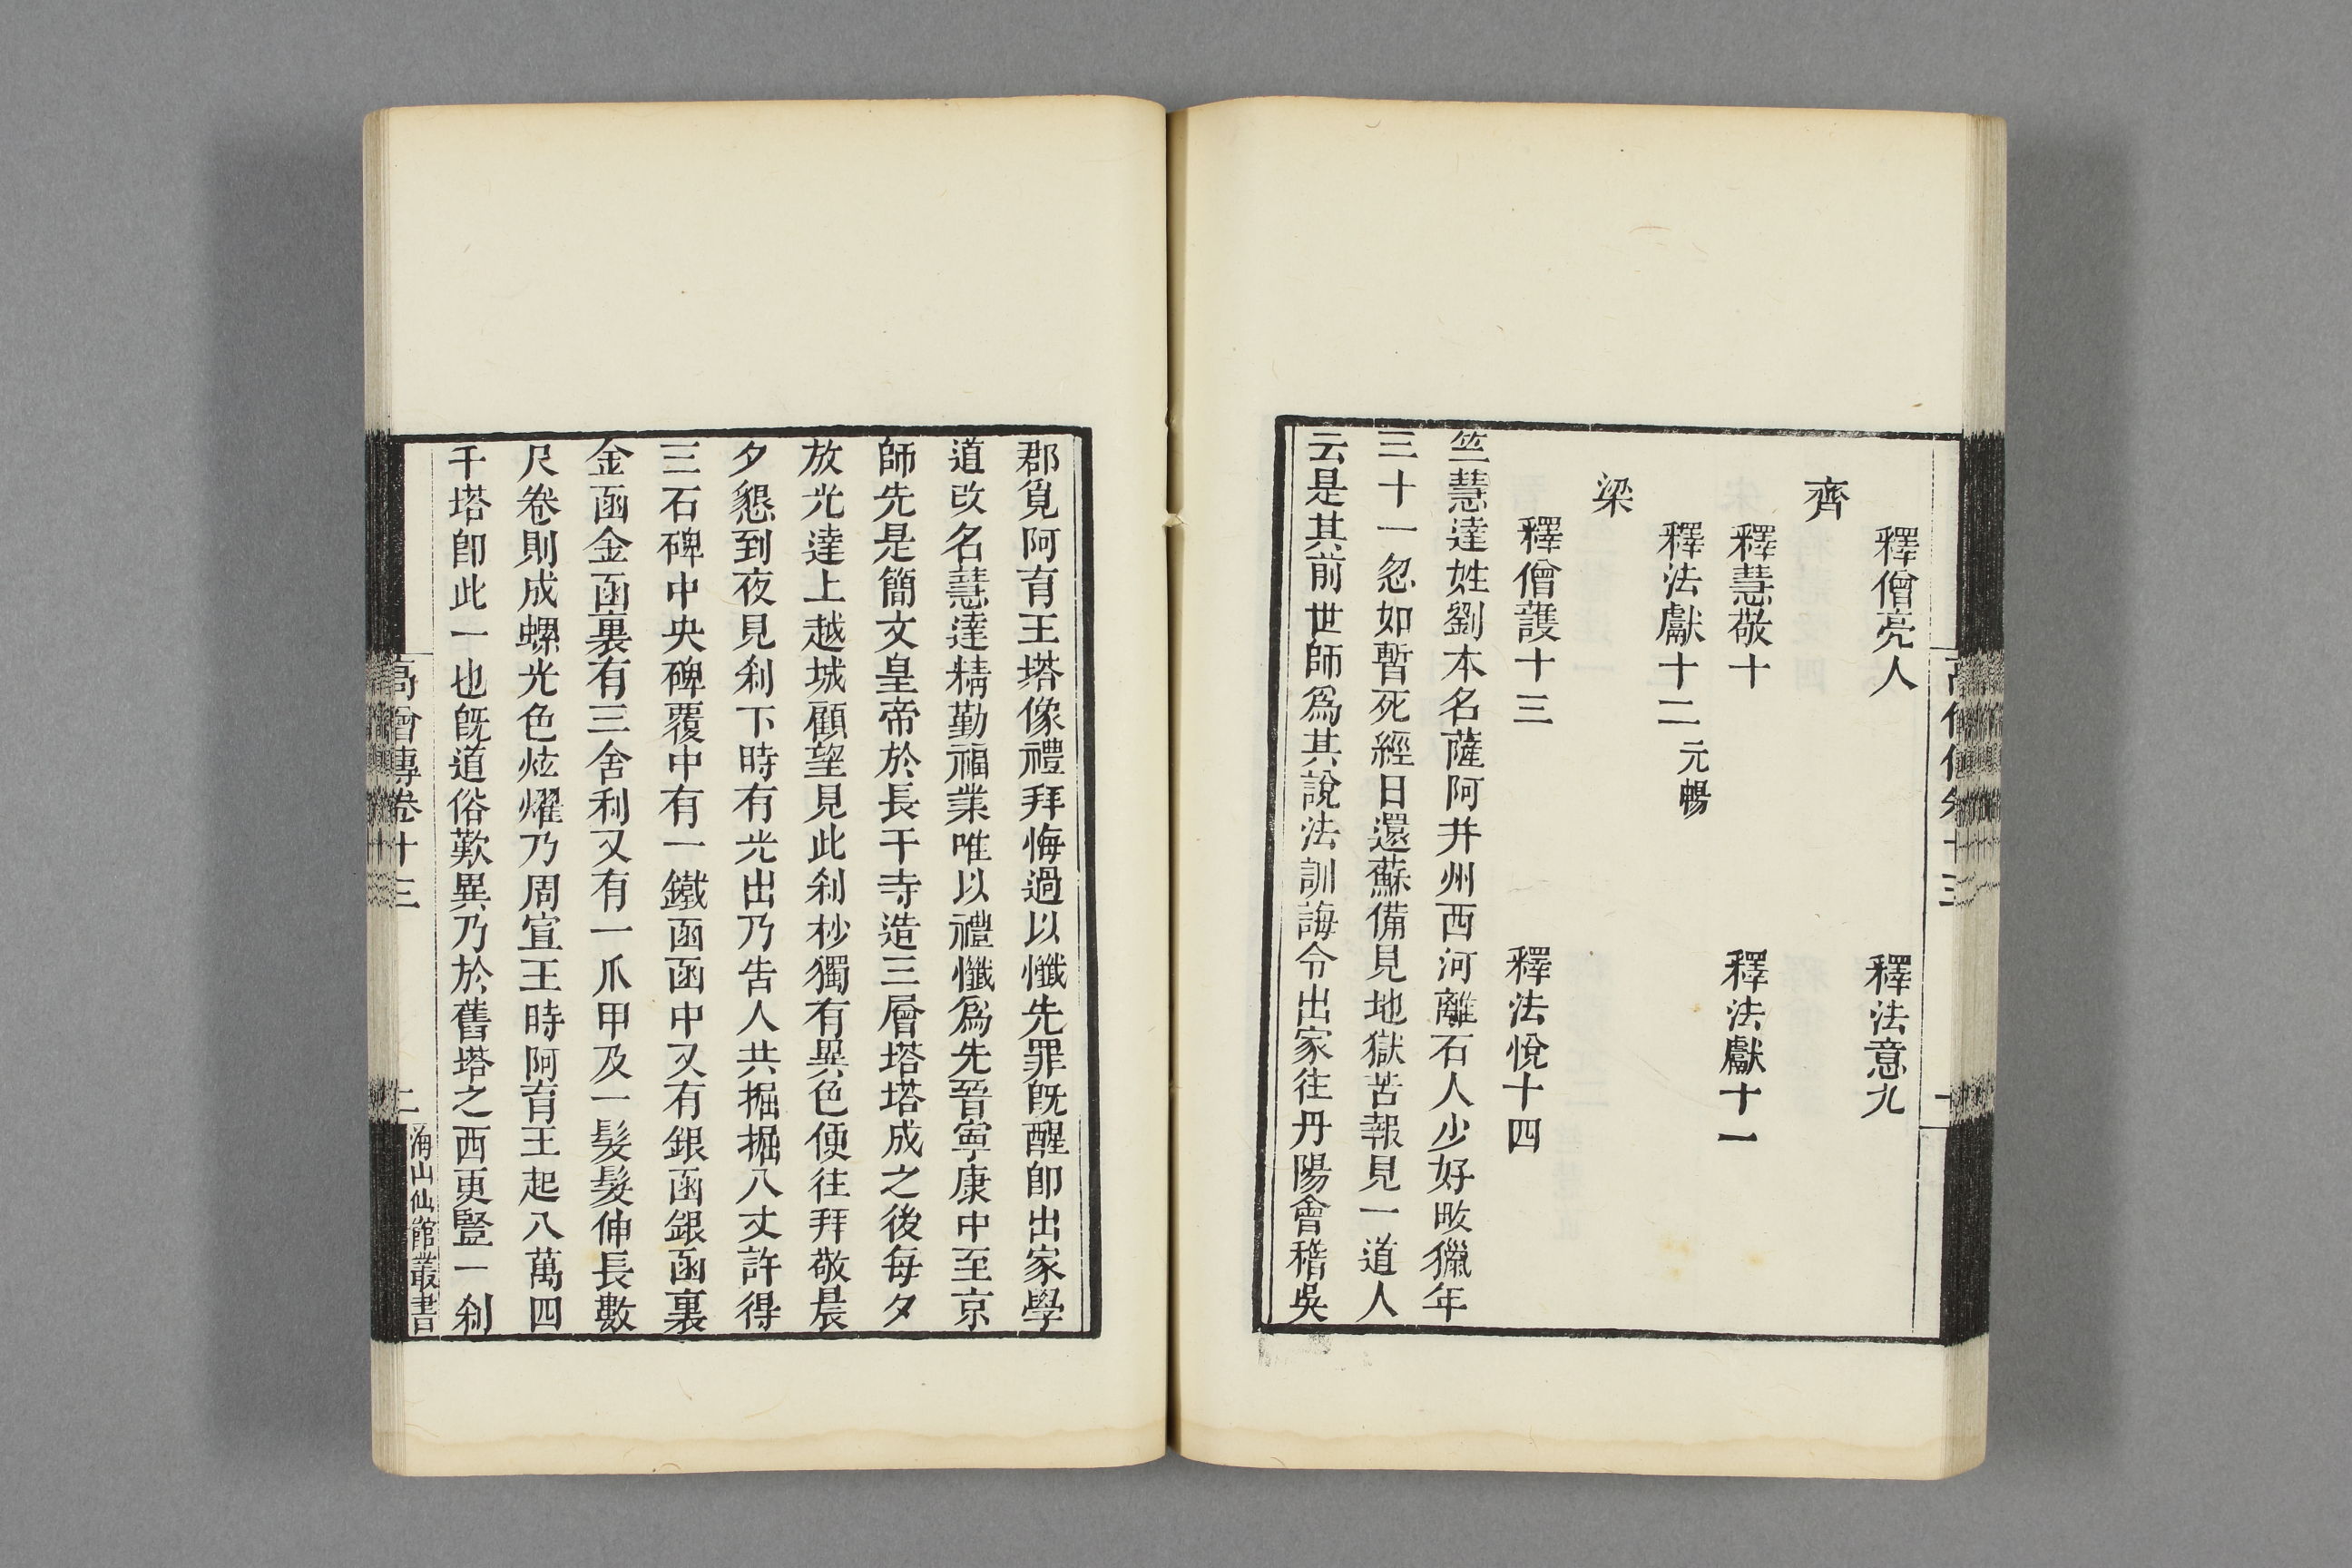 釋僧亮人　釋法意九
齊
釋慧敬十　釋法獻十一
釋法獻十二元暢
梁
釋僧護十三　釋法悅十四
竺慧達姓劉本名薩阿并州西河離石人少好畋獵年
三十一忽如暫死經日還蘇備見地獄苦報見一道人
云是其前世師爲其說法訓誨令出家往丹陽會稽吳
郡覓阿育王塔像禮拜悔過以懺先罪旣醒卽出家學
道改名慧達精勤福業唯以禮懺爲先晉寧康中至京
師先是簡文皇帝於長干寺造三層塔塔成之後每夕
放光達上越城顧望見此刹杪獨有異色便往拜敬晨
夕懇到夜見刹下時有光出乃告人共掘掘八丈許得
三石碑中央碑覆中有一鐵函函中又有銀函銀函裏
金函金函裏有三舍利又有一爪甲及一髮髮伸長數
尺卷則成螺光色炫燿乃周宣王時阿育王起八萬四
千塔卽此一也旣道俗歎異乃於舊塔之西更豎一刹
高僧傳卷十三　二　海山仙館叢書